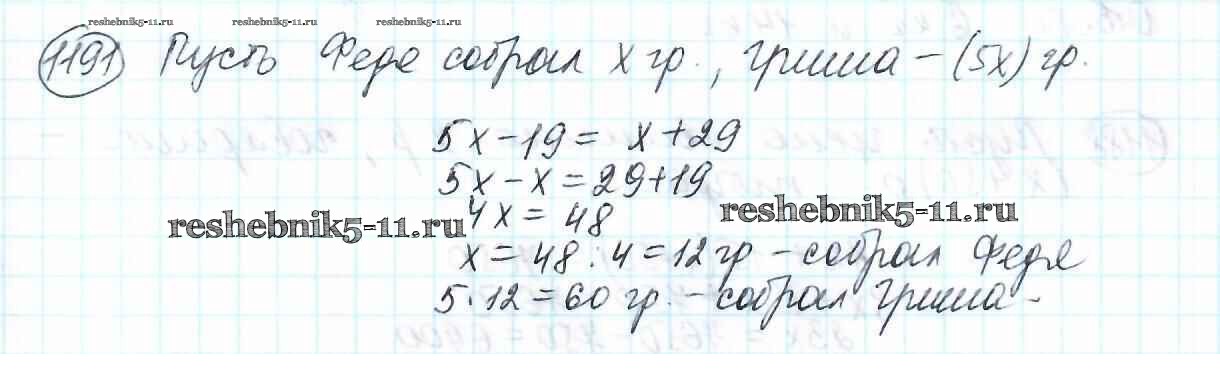 reshebnik5-11.ru reshebnik5-11.ru reshebnik5-11.ru
1191 Пусть Федя собрал x гр., Гриша – (5x) гр.
5x – 19 = x + 29
5x – x = 29 + 19
reshebnik5-11.ru 4x = 48 reshebnik5-11.ru
x = 48 : 4 = 12 гр – собрал Федя
5 · 12 = 60 гр. – собрал Гриша –